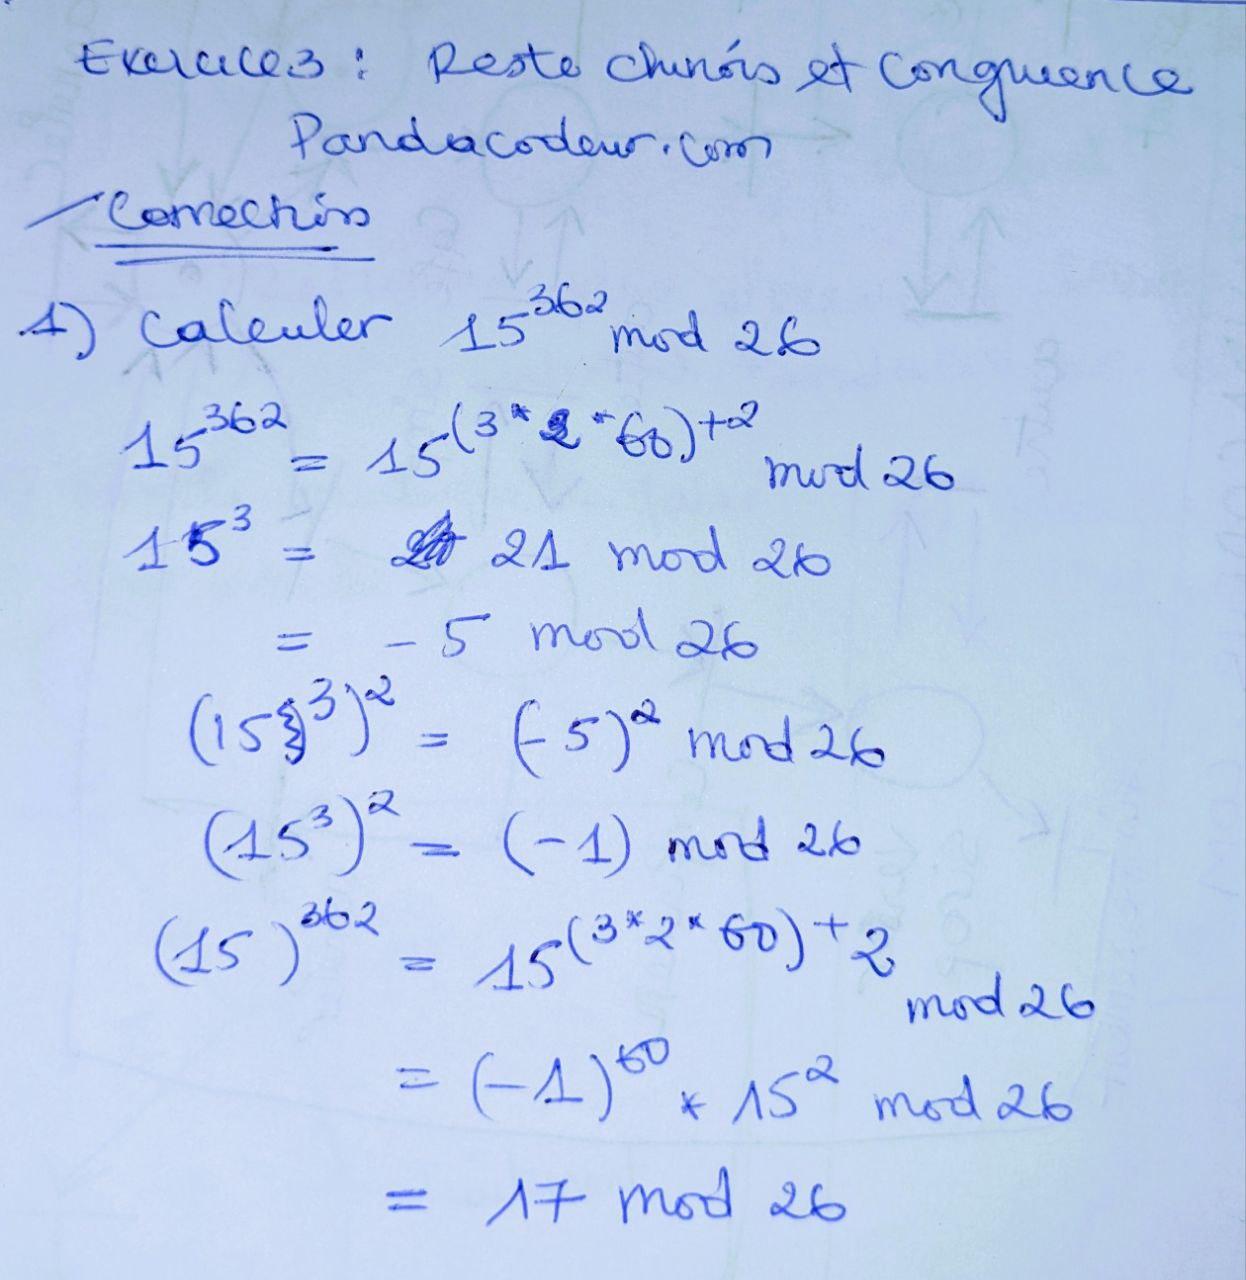 Exercice3 : Reste chinois et Congruence
Pandacodeur.com
Correction
1) Calculer 15^362 mod 26
15^362 = 15^(3*2*60)+2 mod 26
15^3 = 21 mod 26
= -5 mod 26
(15^3)^2 = (-5)^2 mod 26
(15^3)^2 = (-1) mod 26
(15)^362 = 15^(3*2*60)+2 mod 26
= (-1)^60 * 15^2 mod 26
= 17 mod 26